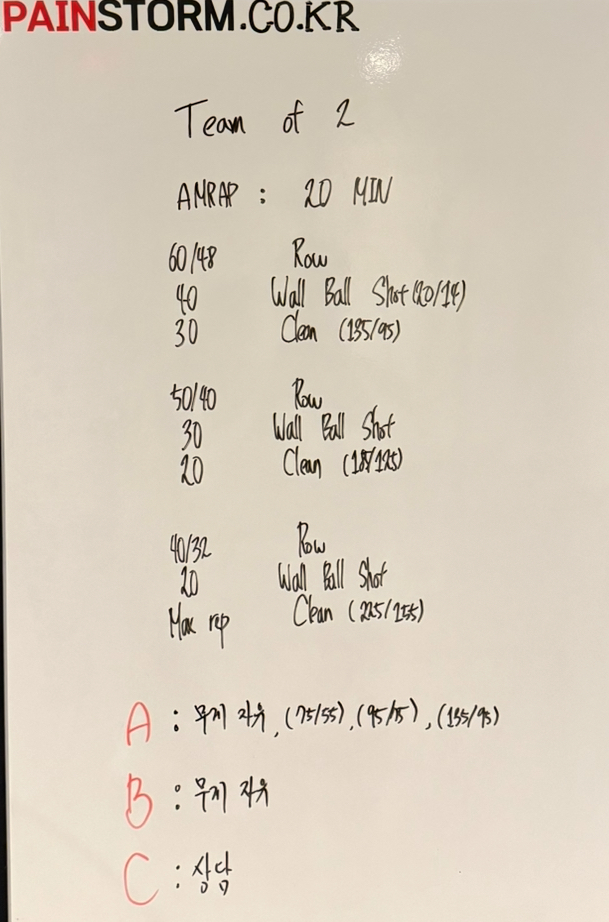 PAINSTORM.CO.KR
Team of 2
AMRAP : 20 MIN
60/48 Row
40 Wall Ball Shot (20/14)
30 Clean (135/95)
50/40 Row
30 Wall Ball Shot
20 Clean (185/125)
40/32 Row
20 Wall Ball Shot
Max rep Clean (225/155)
A : 무게 자유, (75/55), (95/75), (135/95)
B : 무게 자유
C : 상담